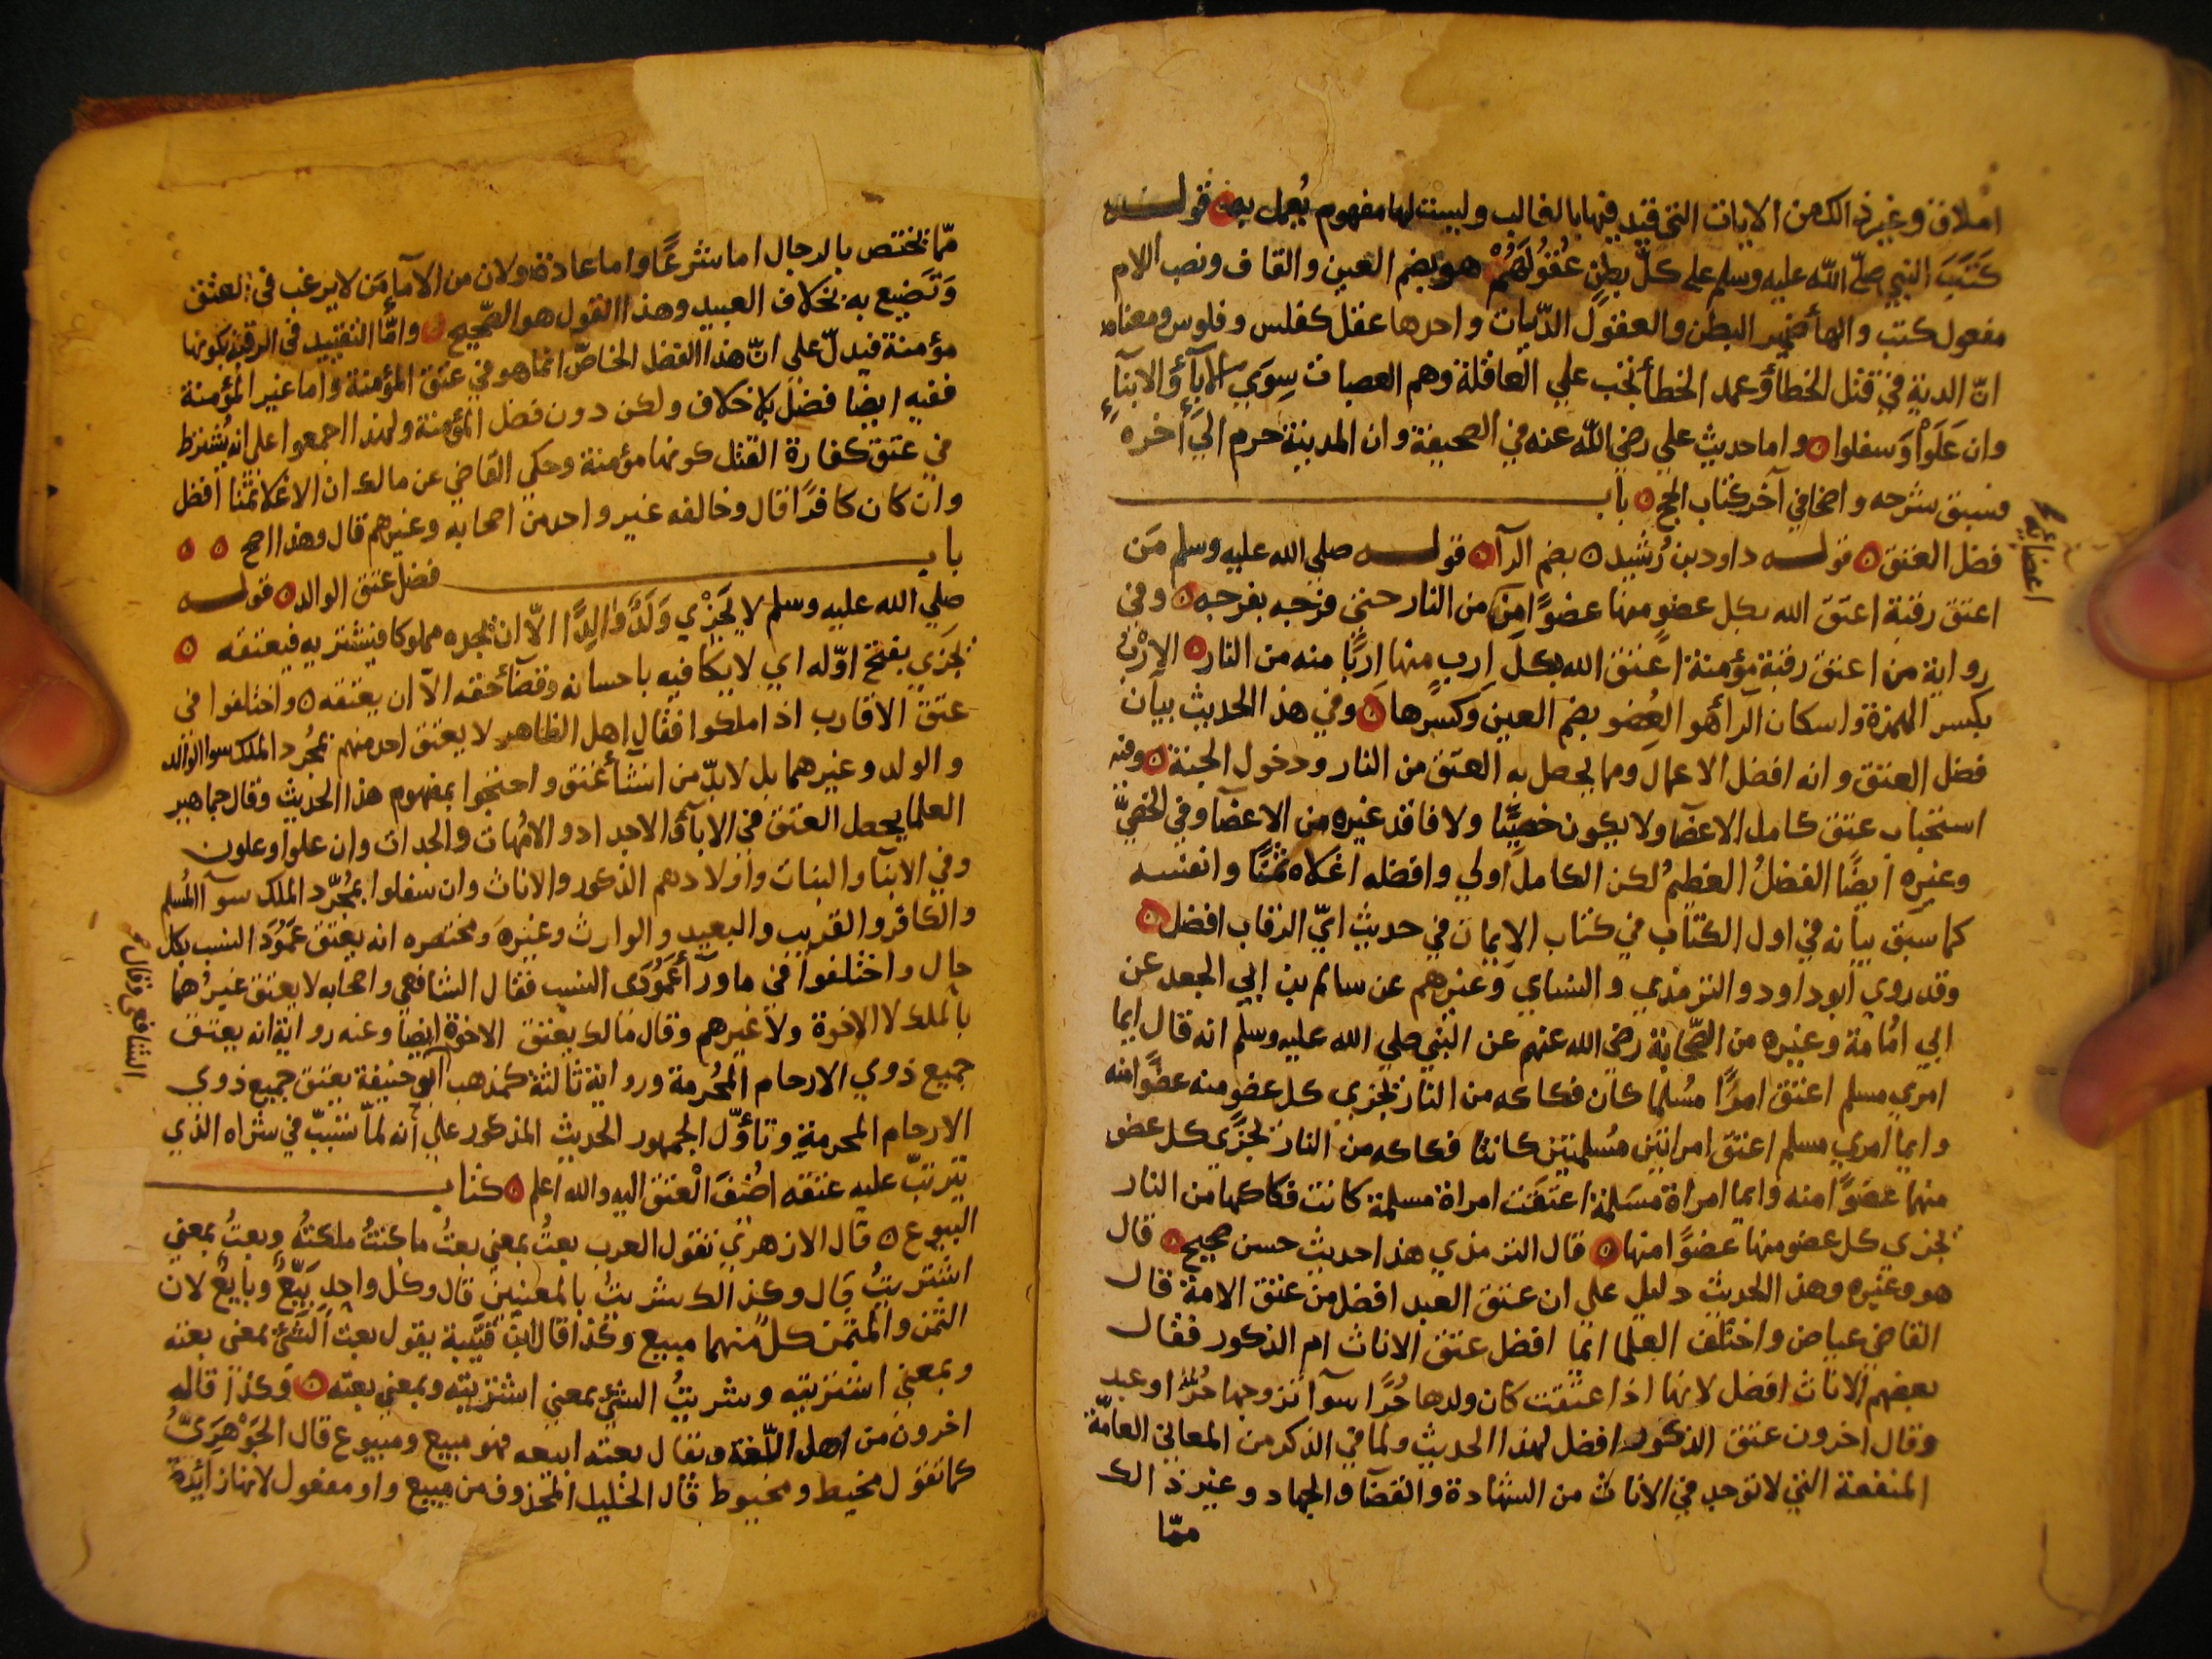 املاق وغير ذالك من الايات التي قيد فيها بالغالب وليست لها مفهوم يُعمل به قوله
كَتَبَ النبي صلّى الله عليه وسلم على كلّ بطن عُقُولَهُمْ هو بضم العين والقاف ونصب اللام
مفعول كتب والهأ ضمير البطن والعقول الدّيات واحدها عقل كفلس وفلوس ومعناه
انّ الدية في قتل الخطأ وعمد الخطأ تجب علي العاقلة وهم العصبات سِوَي الآبآء والابنآء
وان عَلَوْا وَسفلوا واما حديث علي رضي الله عنه في الصحيفة وان المدينة حرم الي آخره
فسبق شرحه واضحا في آخر كتاب الحج باب
فضل العتق قوله داود بن رُشيد بضم الرآ قوله صلي الله عليه وسلم مَن
اعتق رقبة اعتق الله بكل عضو منها عضوًا من من النار حتي فرجه بفرجه وفي
رواية من اعتق رقبة مؤمنة اعتق الله بكل ارب منها اربًا منه من النار الإرْبُ
بكسر الهمزة واسكان الرآ هو العُِضو بضم العين وكسرها وفي هذ الحديث بيان
فضل العتق وانه افضل الاعمال ومما يحصل به العتق من النار ودخول الجنة وفيه
استحباب عتق كامل الاعضآ ولا يكون خصيًّا ولا فاقد غيره من الاعضآ وفي الخصيّ
وغيره ايضًا الفضلُ العظيمُ لكن الكامل اولي وافضله اغلاه ثمنًا وانفسه
كما سبق بيانه في اول الكتاب في كتاب الايمان في حديث ايّ الرقاب افضل
وقد روي ابو داود والترمذي والنساي وغيرهم عن سالم بن ابي الجعد عن
ابي امُامة وغيره من الصّحابة رضي الله عنهم عن النبي صلي الله عليه وسلم انه قال ايما
امري مسلم اعتق امرًا مسُلما كان فكاكه من النار يجزي كل عضو منه عضوًا منه
وايما امري مسلم اعتق امراتين مسلمتين كانتا فكاكه من النار يجزي كل عضو
منهما عضوًا منه وايما امراة مسلمة اعتقت امراة مسلمة كانت فكاكها من النار
يجزي كل عضو منها عضوًا منها قال الترمذي هذا حديث حسن صحيح قال
هو وغيره وهذ الحديث دليل علي ان عتق العبد افضل من عتق الامة قال
القاضي عياض واختلف العلما ايما افضل عتق الاناث ام الذكور فقال
بعضهم الاناث افضل لانها اذا عتقت كان ولدها حُرًّا سوآ تزوجها حُرٌّ او عبد
وقال آخرون عتق الذكور افضل لهذا الحديث ولما في الذكر من المعاني العامّة
المنفعة التي لا توجد في الاناث من الشهادة والقضآ والجهاد وغير ذالك
ممّا
اعضائه
ممّا يختص بالرجال اما شرعًا واما عادة ولان من الآمآ مَن لا يرغب في العتق
وَتَضيع به بخلاف العبيد وهذا القول هو الصّحيح وامّا التقييد في الرقبة بكونها
مؤمنة فيدلّ على انّ هذا الفضل الخاصّ انما هو في عتق المؤمنة واما غير المؤمنة
ففيه ايضًا فضل بلا خلاف ولكن دون فضل المؤمنة ولهذا اجمعوا علي انه يُشترط
في عتق كفارة القتل كونها مؤمنة وحكي القاضي عن مالك ان الاغلا ثمنا افضل
وان كان كافرًا قال وخالفه غير واحد من اصحابه وغيرهم قال وهذا اصح
باب فضل عتق الوالد قوله
صلي الله عليه وسلم لا يَجْزي وَلَدٌ وَالِدًا الاّ ان يجده مملوكا فيشتريه فيعتقه
يَجزي بفتح اوّله اي لا يكافيه باحسانه وقضآ حقه الاّ ان يعتقه واختلفوا في
عتق الاقارب اذا ملكوا فقال اهل الظاهر لا يعتق احد منهم بمجُرد الملك سوا الوالد
والولد وغيرهما بل لا بدّ من انشآ عتق واحتجوا بمفهوم هذا الحديث وقال جماهير
العلما يحصل العتق في الابآ والاجداد والامُهات والجدات وان علوا وعلون
وفي الابنآ والبنات واولادهم الذكور والاناث وان سفلوا بمُجَرّد الملك سوآ المُسلم
والكافر والقريب والبعيد والوارث وغيره ومختصره انه يعتق عَمُودَا النسب بكل
حال واختلفوا في ما ورآ عَمُودَي النسب فقال الشافعي واصحابه لا يعتق غيرُهما
بالملك لا الاخوة ولا غيرهم وقال مالك يعتق الاخوة ايضا وعنه رواية انه يعتق
جميع ذوي الارحام المُحرمة ورواية ثالثة كمذهب ابو حنيفة يعتق جميع ذوي
الارحام المحرمة وتأوّل الجمهور الحديث المذكور علي انه لمّا تسّبب في شراه الذي
يترتبّ عليه عتقه اضُفَ العتق اليه والله اعلم كتاب
البيوع قال الازهري تقول العرب بعتُ بمعني بعتُ ما كنتُ ملكتُه وبعتُ بمعني
اشتريتُ قال وكذالك شريتُ بالمعنيين قال وكل واحد بَيِّعٌ وبايعٌ لان
الثمن والمثمن كلّ منهما مبيع وكذا قال ابن قتيبة يقول بعت الشئ بمعني بعته
وبمعني اشتريته وشريتُ الشئ بمعني اشتريته وبمعني بعته وكذا قاله
اخرون من اهل اللّغة ويقال بعته ابيعه فهو مبيع ومبيوع قال الجَوْهَرِيُّ
كما تقول مخيط ومخيوط قال الخليل المحذوف من مبيع واو مفعول لانها زايدة
الشافعي وقال